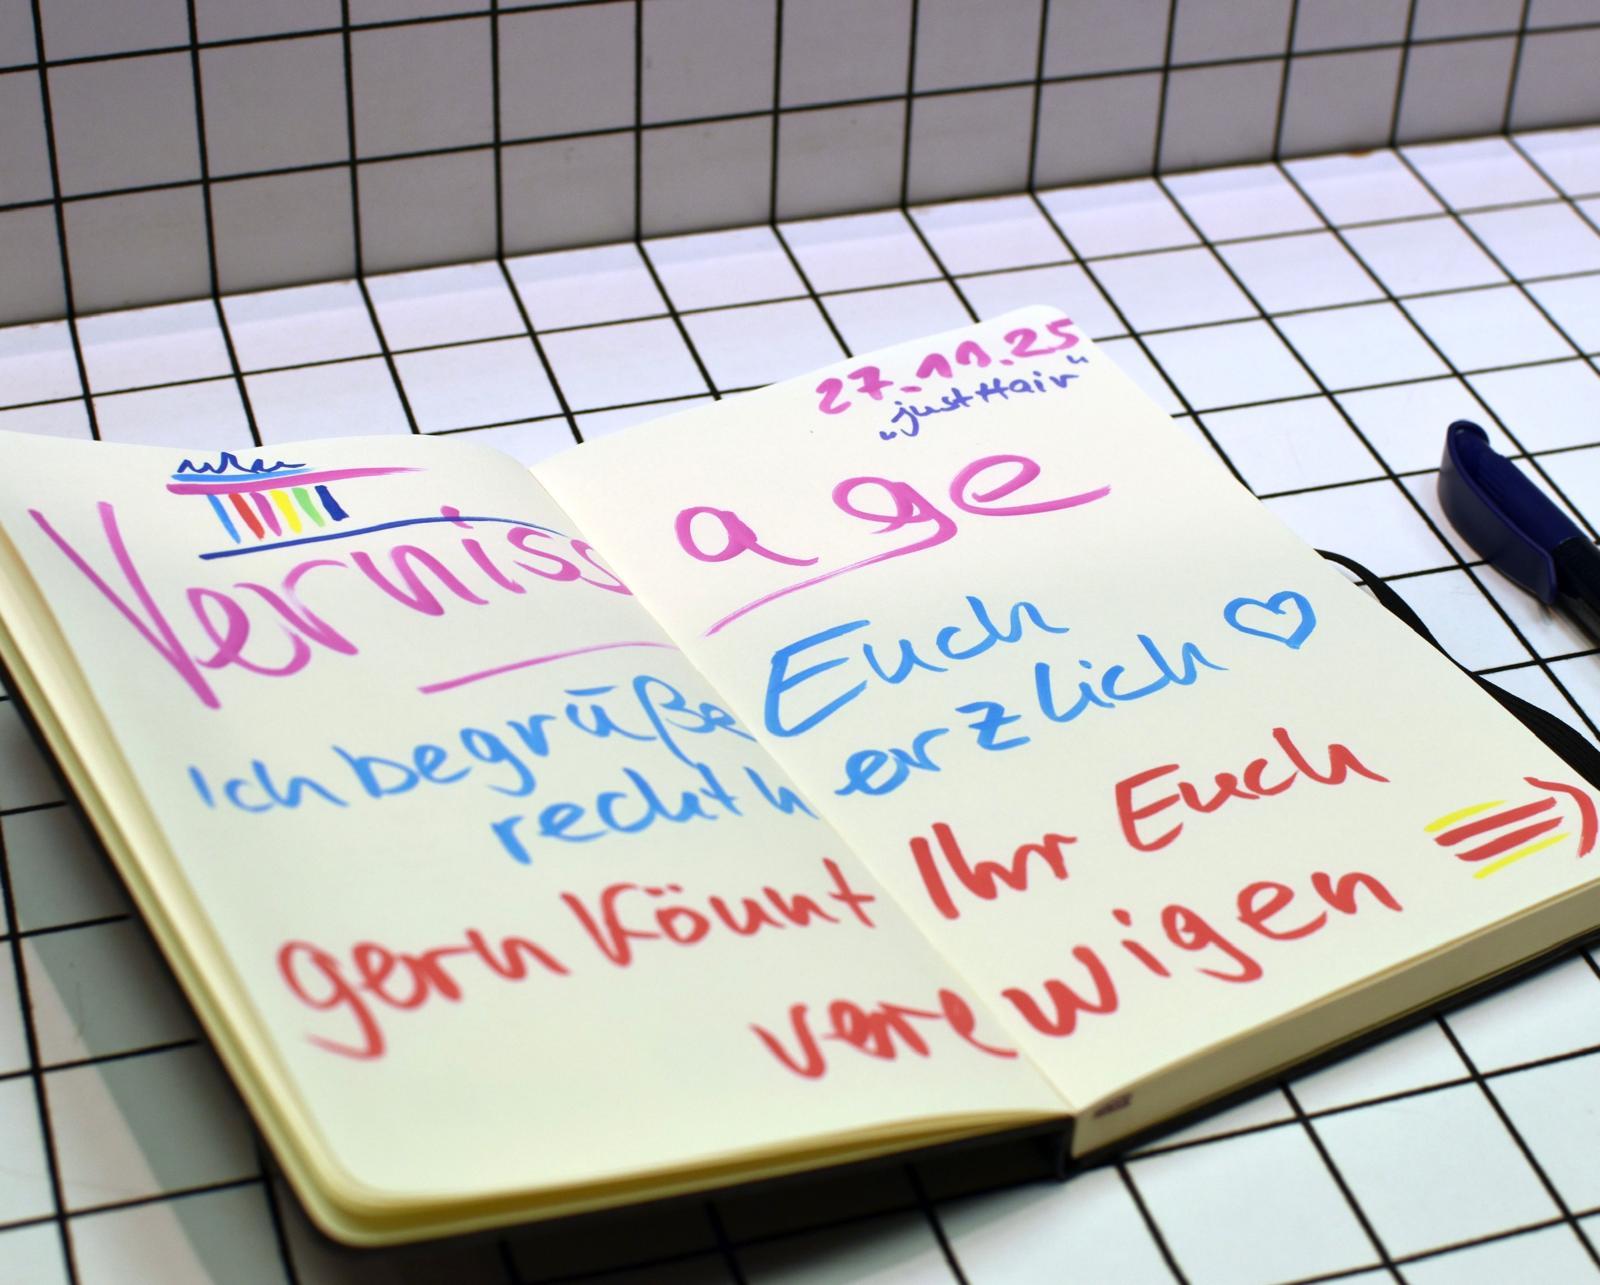 27.11.25
„justHair"
Vernissage
Ich begrüße Euch
recht herzlich ♡
gern könnt Ihr Euch
verewigen